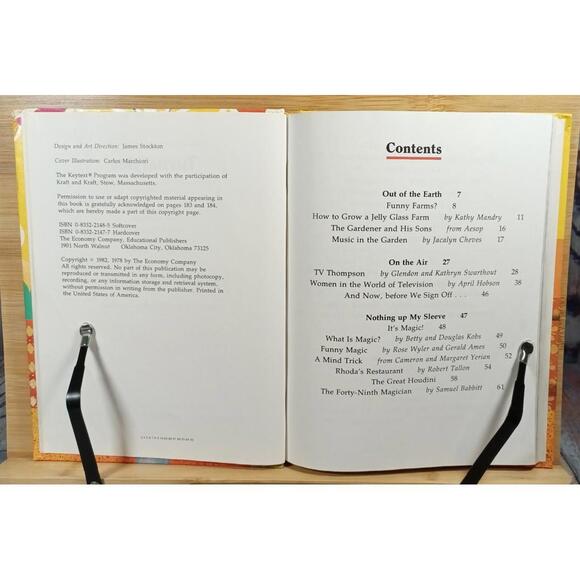 Design and Art Direction: James Stockton
Cover Illustration: Carlos Marchiori
The Keytext® Program was developed with the participation of
Kraft and Kraft, Stow, Massachusetts.
Permission to use or adapt copyrighted material appearing in
this book is gratefully acknowledged on pages 183 and 184,
which are hereby made a part of this copyright page.
ISBN 0-8332-2148-5 Softcover
ISBN 0-8332-2147-7 Hardcover
The Economy Company, Educational Publishers
1901 North Walnut Oklahoma City, Oklahoma 73125
Copyright © 1982, 1978 by The Economy Company
All rights reserved. No part of this publication may be
reproduced or transmitted in any form or by any means,
electronic or mechanical, including photocopy,
recording, or any information storage and retrieval system,
without permission in writing from the publisher. Printed in
the United States of America.
Contents
Out of the Earth 7
Funny Farms? 8
How to Grow a Jelly Glass Farm by Kathy Mandry 11
The Gardener and His Sons from Aesop 16
Music in the Garden by Jacalyn Cheves 17
On the Air 27
TV Thompson by Glendon and Kathryn Swarthout 28
Women in the World of Television by April Hobson 38
And Now, before We Sign Off . . . 46
Nothing up My Sleeve 47
It's Magic! 48
What Is Magic? by Betty and Douglas Kobs 49
Funny Magic by Rose Wyler and Gerald Ames 50
A Mind Trick from Cameron and Margaret Yerian 52
Rhoda's Restaurant by Robert Tallon 54
The Great Houdini 58
The Forty-Ninth Magician by Samuel Babbitt 61